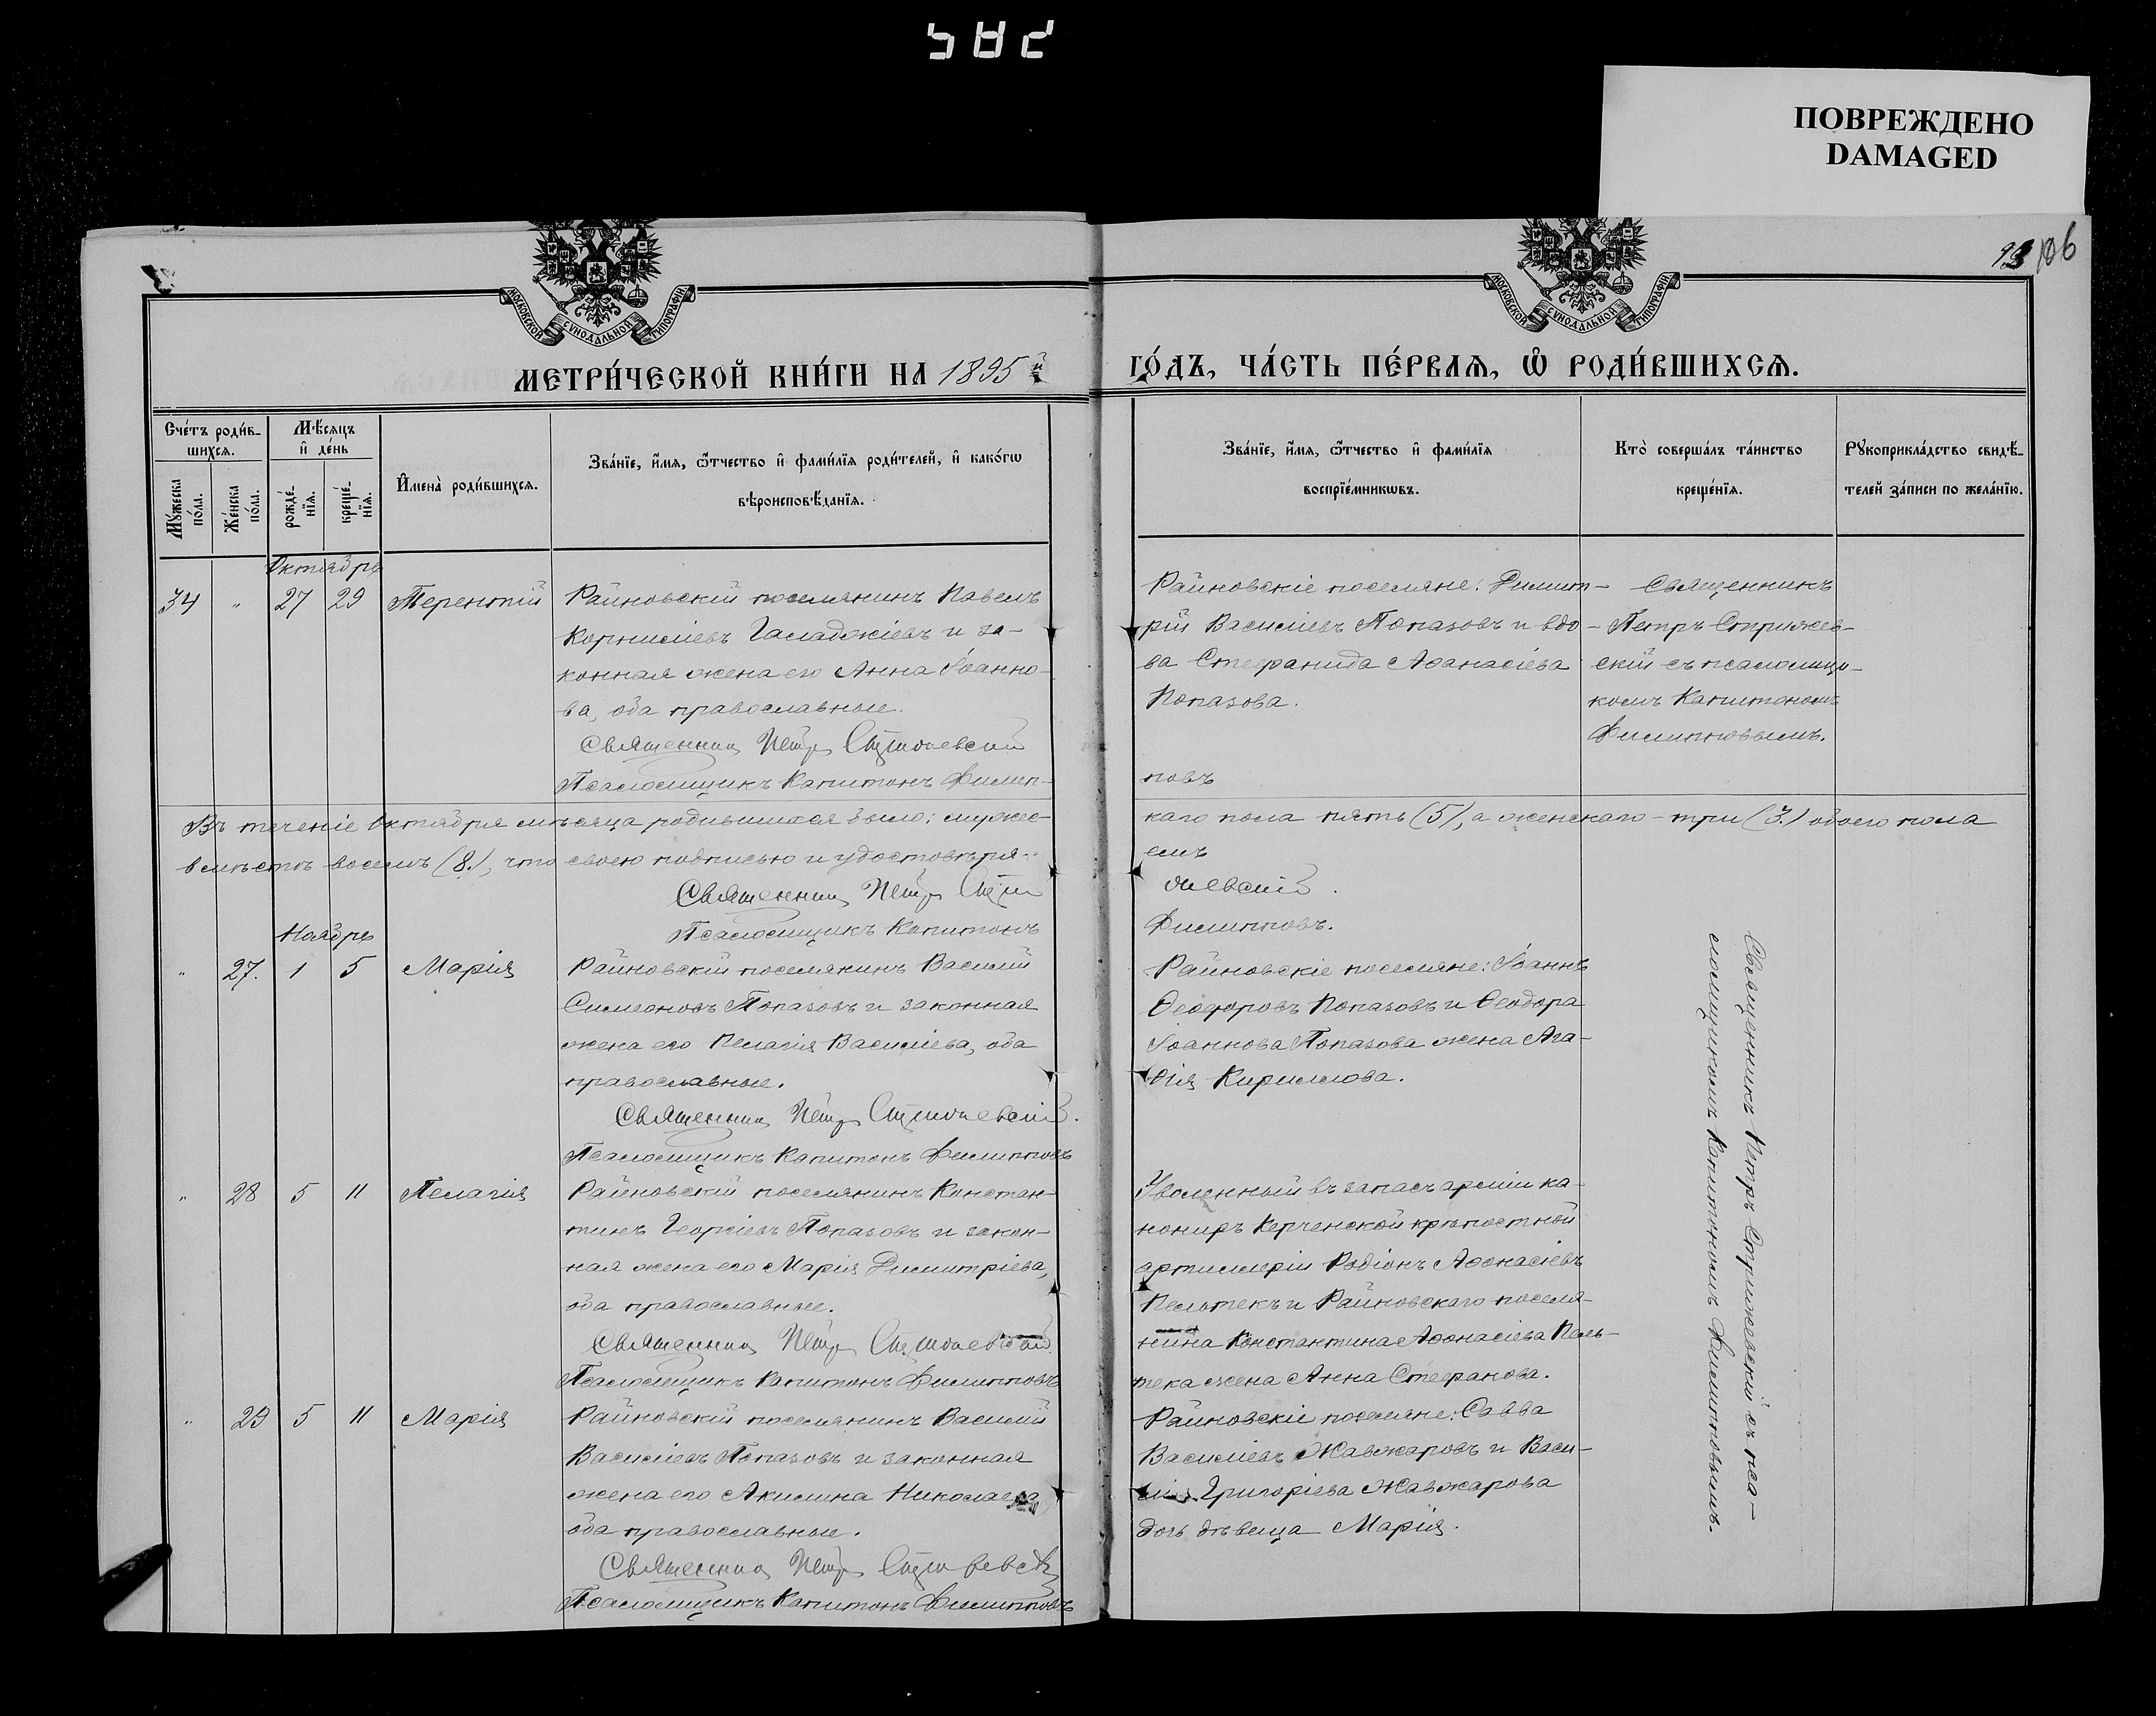 582
ПОВРЕЖДЕНО
DAMAGED
93 106
МОСКОВСКОЙ СѴНОДАЛЬНОЙ ТИПОГРАФІИ
МОСКОВСКОЙ СѴНОДАЛЬНОЙ ТИПОГРАФІИ
МЕТРИ́ЧЕСКОЙ КНИ́ГИ НА 1895й
ГО́ДЪ, ЧА́СТЬ ПЕ́РВАѦ, Ѡ҆ РОДИ́ВШИХСѦ.
Сче́тъ роди́в-
шихсѧ.
Мꙋ́жеска по́ла.
Же́нска по́ла.
Мѣ́сѧцъ
и҆ де́нь
рожде́-
нїѧ.
креще́-
нїѧ.
И҆мена̀ роди́вшихсѧ.
Зва́нїе, и҆́мѧ, ѻ҆́тчество и҆ фами́лїѧ роди́телей, и҆ како́гѡ
вѣроисповѣ́данїѧ.
Зва́нїе, и҆́мѧ, ѻ҆́тчество и҆ фами́лїѧ
воспрїе́мникѡвъ.
Кто̀ соверша́лъ та́инство
креще́нїѧ.
Рꙋкоприкла́дство свидѣ́-
телей за́писи по жела́нїю.
Октябрь
34 " 27 29 Терентій
Райновскій поселянинъ Павелъ
Корниліевъ Галаджіевъ и за-
конная жена его Анна Іоанно-
ва, оба православные.
Священникъ Петръ Стрижевскій
Псаломщикъ Капитонъ Филип-
повъ
Райновскіе поселяне: Димит-
рій Василіевъ Попазовъ и вдо-
ва Стефанида Аѳанасіева
Попазова.
Священникъ
Петръ Стрижев-
скій съ псаломщи-
комъ Капитономъ
Филипповымъ.
Въ теченіе Октября мѣсяца родившихся было: мужес-
каго пола пять (5), а женскаго - три (3.) обоего пола
вмѣстѣ восемь (8.), что своею подписью и удостовѣря-
емъ
Священникъ Петръ Стри
жевскій.
Псаломщикъ Капитонъ
Филипповъ.
Ноябрь
" 27. 1 5 Марія
Райновскій поселянинъ Василій
Симеоновъ Попазовъ и законная
жена его Пелагія Василіева, оба
православные.
Священникъ Петръ Стрижевскій.
Псаломщикъ Капитонъ Филипповъ
Райновскіе поселяне: Іоаннъ
Ѳеодоровъ Попазовъ и Ѳеодора
Іоаннова Попазова жена Ага-
ѳія Кириллова.
" 28 5 11 Пелагія
Райновскій поселянинъ Констан-
тинъ Георгіевъ Попазовъ и закон-
ная жена его Марія Димитріева,
оба православные.
Священникъ Петръ Стрижевскій
Псаломщикъ Капитонъ Филипповъ
Уволенный въ запасъ арміи ка-
нониръ Керченской крѣпостной
артиллеріи Родіонъ Аѳонасіевъ
Пельтекъ и Райновскаго поселя-
нина Константина Аѳонасіева Пель-
тека жена Анна Стефанова.
" 29 5 11 Марія
Райновскій поселянинъ Василій
Василіевъ Попазовъ и законная
жена его Акилина Николаева,
оба православные.
Священникъ Петръ Стрижевскій
Псаломщикъ Капитонъ Филипповъ
Райновскіе поселяне: Савва
Василіевъ Жавжаровъ и Васи-
лія Григоріева Жавжарова
дочь дѣвица Марія.
Священникъ Петръ Стрижевскій съ пса-
ломщикомъ Капитономъ Филипповымъ.